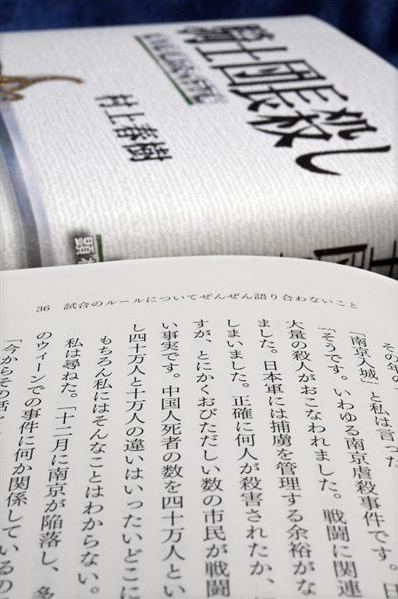 騎士団長殺し
村上春樹
顕
36 試合のルールについてぜんぜん語り合わないこと
その年の
「南京入城」と私は言った
「そうです。いわゆる南京虐殺事件です。日
大量の殺人がおこなわれました。戦闘に関連
ました。日本軍には捕虜を管理する余裕がな
しまいました。正確に何人が殺害されたか、
すが、とにかくおびただしい数の市民が戦闘
い事実です。中国人死者の数を四十万人とい
し四十万人と十万人の違いはいったいどこに
もちろん私にはそんなことはわからない。
私は尋ねた。「十二月に南京が陥落し、多
のウィーンでの事件に何か関係しているの
「今からその話